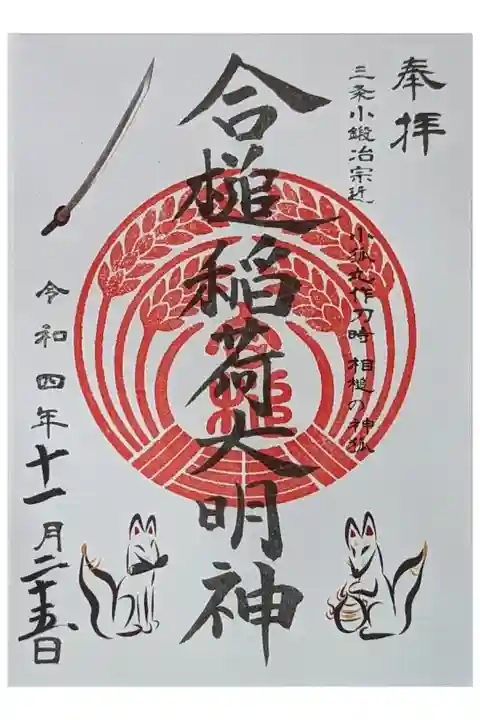 奉拝
三条小鍛冶宗近 小狐丸作刀時 相槌の神狐
合槌稲荷大明神
令和四年十一月二十五日